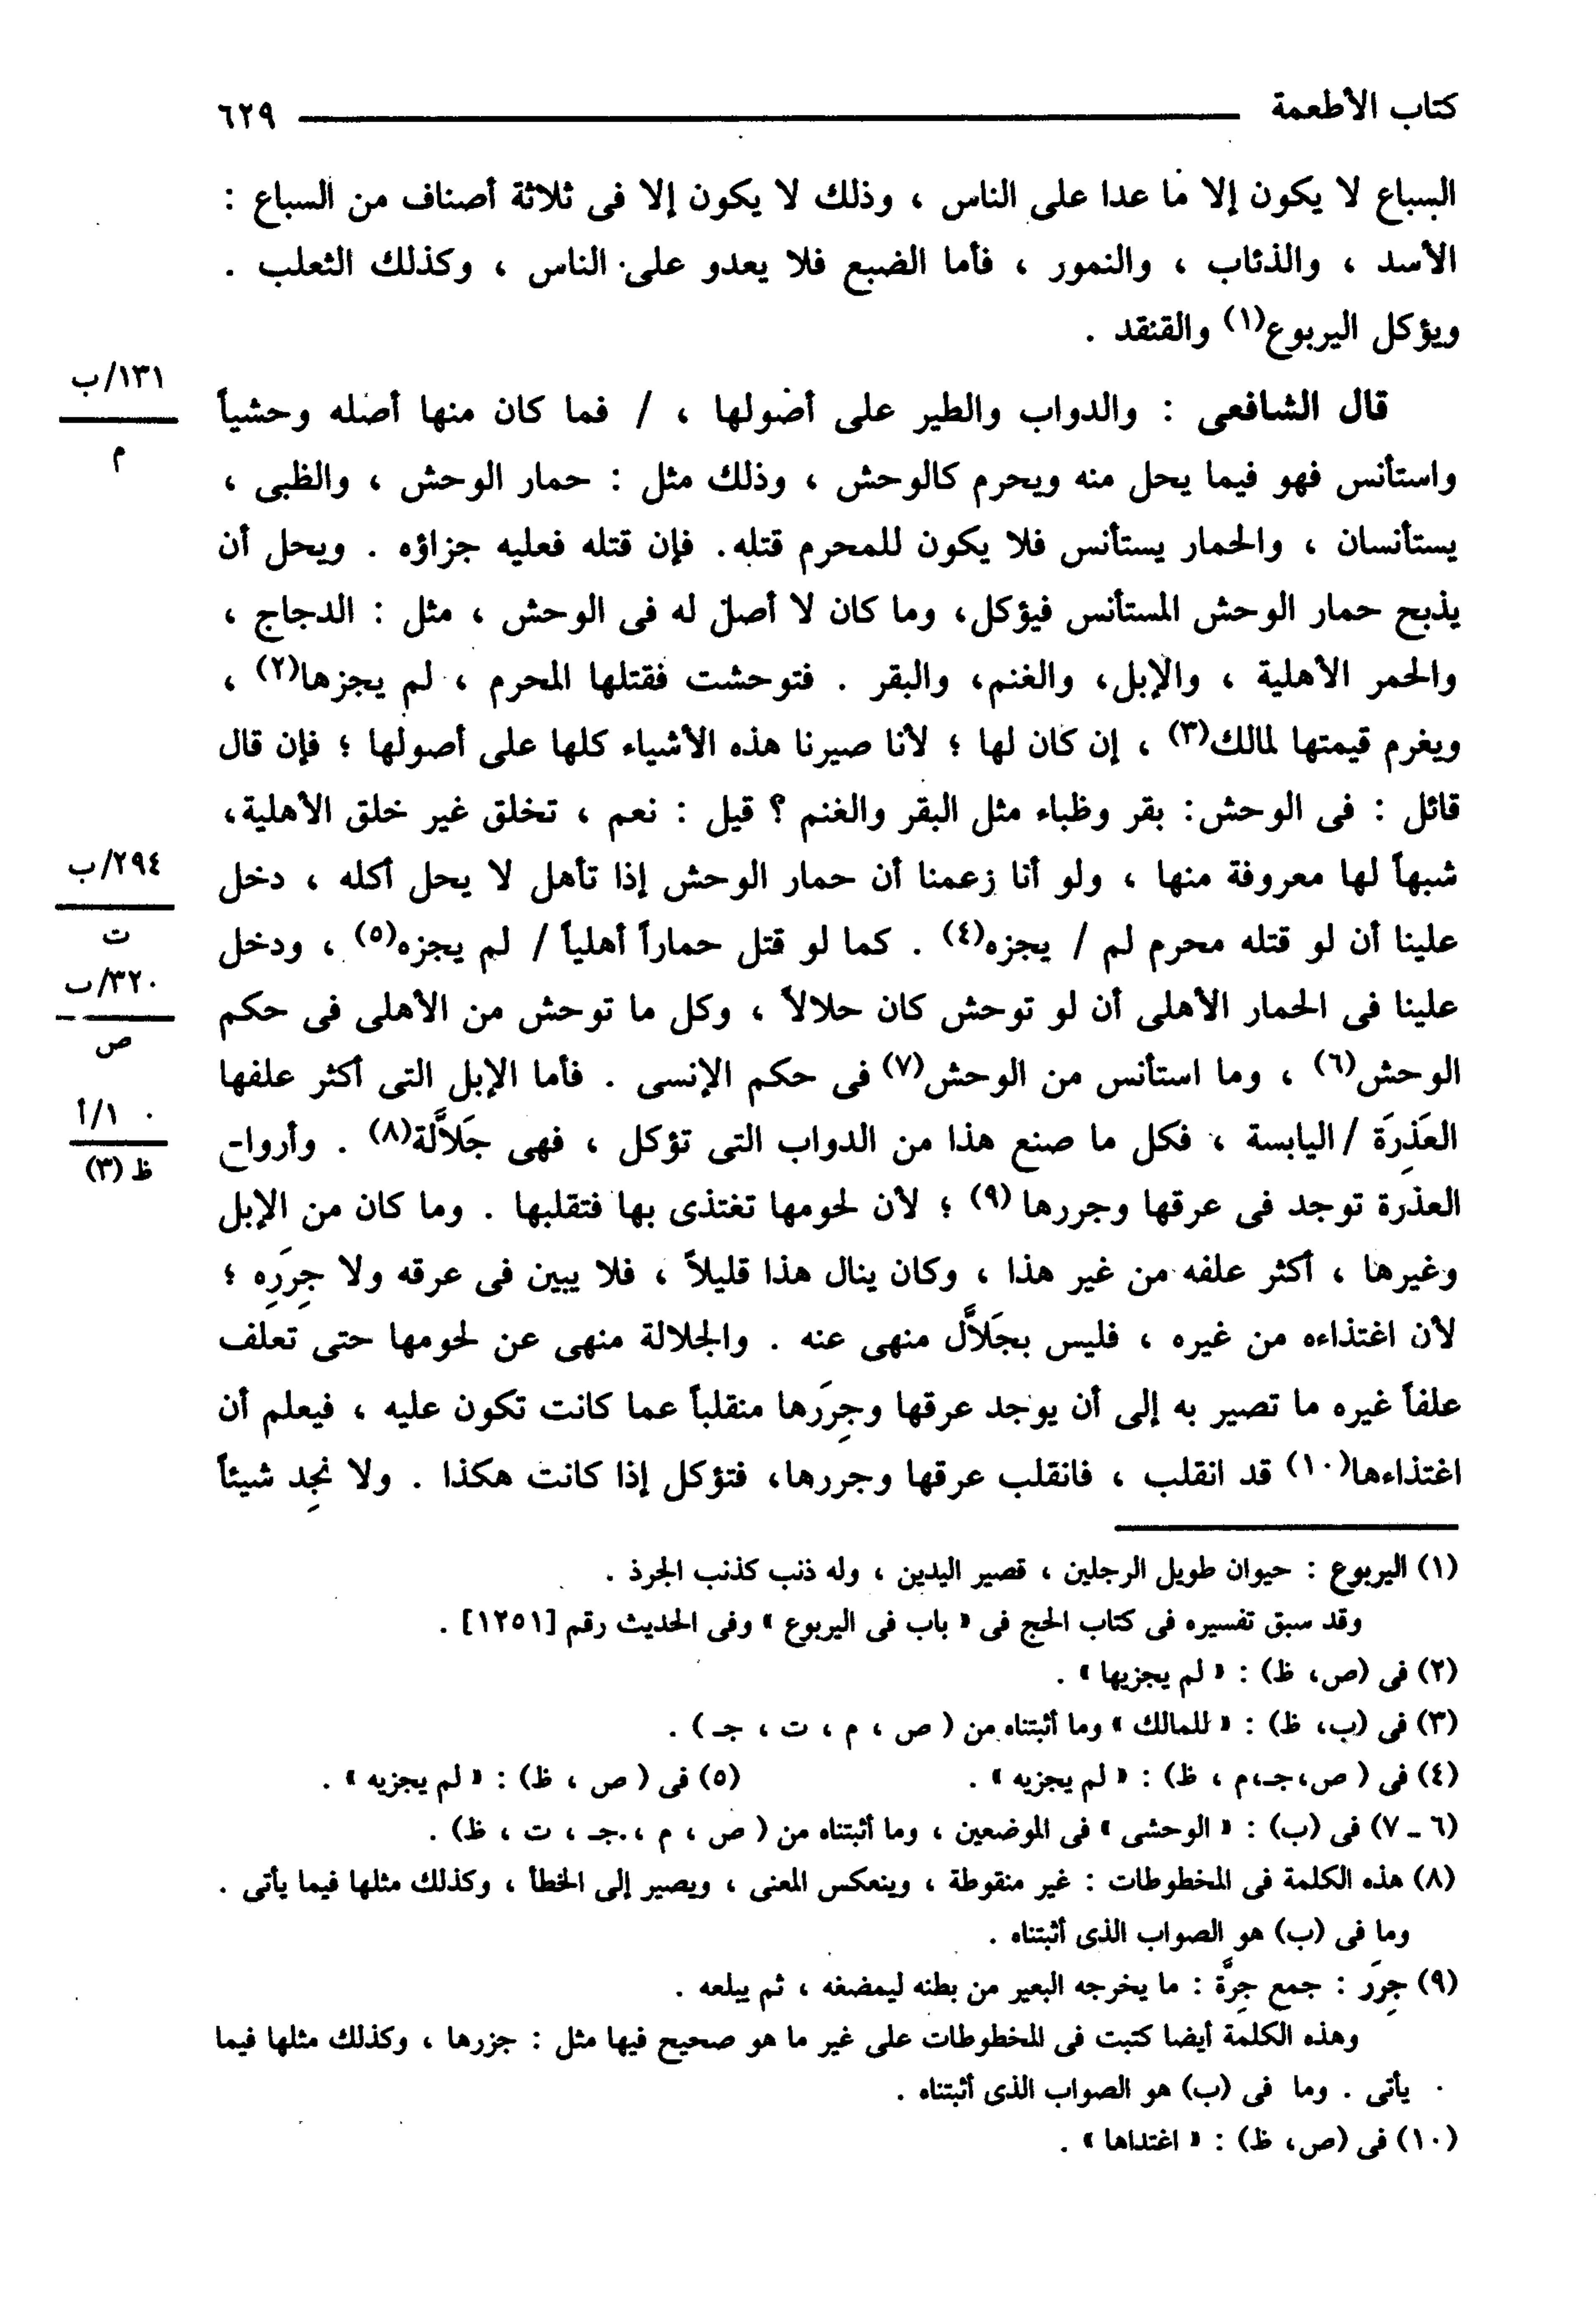 كتاب الأطعمة ٦٢٩
السباع لا يكون إلا ما عدا على الناس ، وذلك لا يكون إلا فى ثلاثة أصناف من السباع :
الأسد ، والذئاب ، والنمور ، فأما الضبع فلا يعدو على الناس ، وكذلك الثعلب .
ويؤكل اليربوع(١) والقنقد .
قال الشافعى : والدواب والطير على أصولها ، / فما كان منها أصله وحشياً
١٣١/ب
م
واستأنس فهو فيما يحل منه ويحرم كالوحش ، وذلك مثل : حمار الوحش ، والظبى ،
يستأنسان ، والحمار يستأنس فلا يكون للمحرم قتله. فإن قتله فعليه جزاؤه . ويحل أن
يذبح حمار الوحش المستأنس فيؤكل، وما كان لا أصل له فى الوحش ، مثل : الدجاج ،
والحمر الأهلية ، والإبل، والغنم، والبقر . فتوحشت فقتلها المحرم ، لم يجزها(٢) ،
ويغرم قيمتها لمالك(٣) ، إن كان لها ؛ لأنا صيرنا هذه الأشياء كلها على أصولها ؛ فإن قال
قائل : فى الوحش: بقر وظباء مثل البقر والغنم ؟ قيل : نعم ، تخلق غير خلق الأهلية،
شبهاً لها معروفة منها ، ولو أنا زعمنا أن حمار الوحش إذا تأهل لا يحل أكله ، دخل
٢٩٤/ب
ت
علينا أن لو قتله محرم لم / يجزه(٤) . كما لو قتل حماراً أهلياً / لم يجزه(٥) ، ودخل
٣٢٠/ب
ص
علينا فى الحمار الأهلى أن لو توحش كان حلالاً ، وكل ما توحش من الأهلى فى حكم
الوحش(٦) ، وما استأنس من الوحش(٧) فى حكم الإنسى . فأما الإبل التى أكثر علفها
١٠/أ
ظ (٣)
العَذِرَة / اليابسة ، فكل ما صنع هذا من الدواب التى تؤكل ، فهى جَلاَّلة(٨) . وأرواح
العذرة توجد فى عرقها وجررها (٩) ؛ لأن لحومها تغتذى بها فتقلبها . وما كان من الإبل
وغيرها ، أكثر علفه من غير هذا ، وكان ينال هذا قليلاً ، فلا يبين فى عرقه ولا جِرَرِه ؛
لأن اغتذاءه من غيره ، فليس بجَلاَّل منهى عنه . والجلالة منهى عن لحومها حتى تعلف
علفاً غيره ما تصير به إلى أن يوجد عرقها وجِرَرها منقلباً عما كانت تكون عليه ، فيعلم أن
اغتذاءها(١٠) قد انقلب ، فانقلب عرقها وجررها، فتؤكل إذا كانت هكذا . ولا نجِد شيئاً
(١) اليربوع : حيوان طويل الرجلين ، قصير اليدين ، وله ذنب كذنب الجرذ .
وقد سبق تفسيره فى كتاب الحج فى « باب فى اليربوع » وفى الحديث رقم [١٢٥١] .
(٢) فى (ص، ظ) : « لم يجزيها » .
(٣) فى (ب، ظ) : « للمالك » وما أثبتناه من ( ص ، م ، ت ، جـ ) .
(٤) فى ( ص،جـ،م ، ظ) : « لم يجزيه » . (٥) فى ( ص ، ظ) : « لم يجزيه » .
(٦ ـ ٧) فى (ب) : « الوحشى » فى الموضعين ، وما أثبتناه من ( ص ، م ، جـ ، ت ، ظ) .
(٨) هذه الكلمة فى المخطوطات : غير منقوطة ، وينعكس المعنى ، ويصير إلى الخطأ ، وكذلك مثلها فيما يأتى .
وما فى (ب) هو الصواب الذى أثبتناه .
(٩) جِرَر : جمع جِرَّة : ما يخرجه البعير من بطنه ليمضغه ، ثم يبلعه .
وهذه الكلمة أيضا كتبت فى المخطوطات على غير ما هو صحيح فيها مثل : جزرها ، وكذلك مثلها فيما
يأتى . وما فى (ب) هو الصواب الذى أثبتناه .
(١٠) فى (ص، ظ) : « اغتداها » .